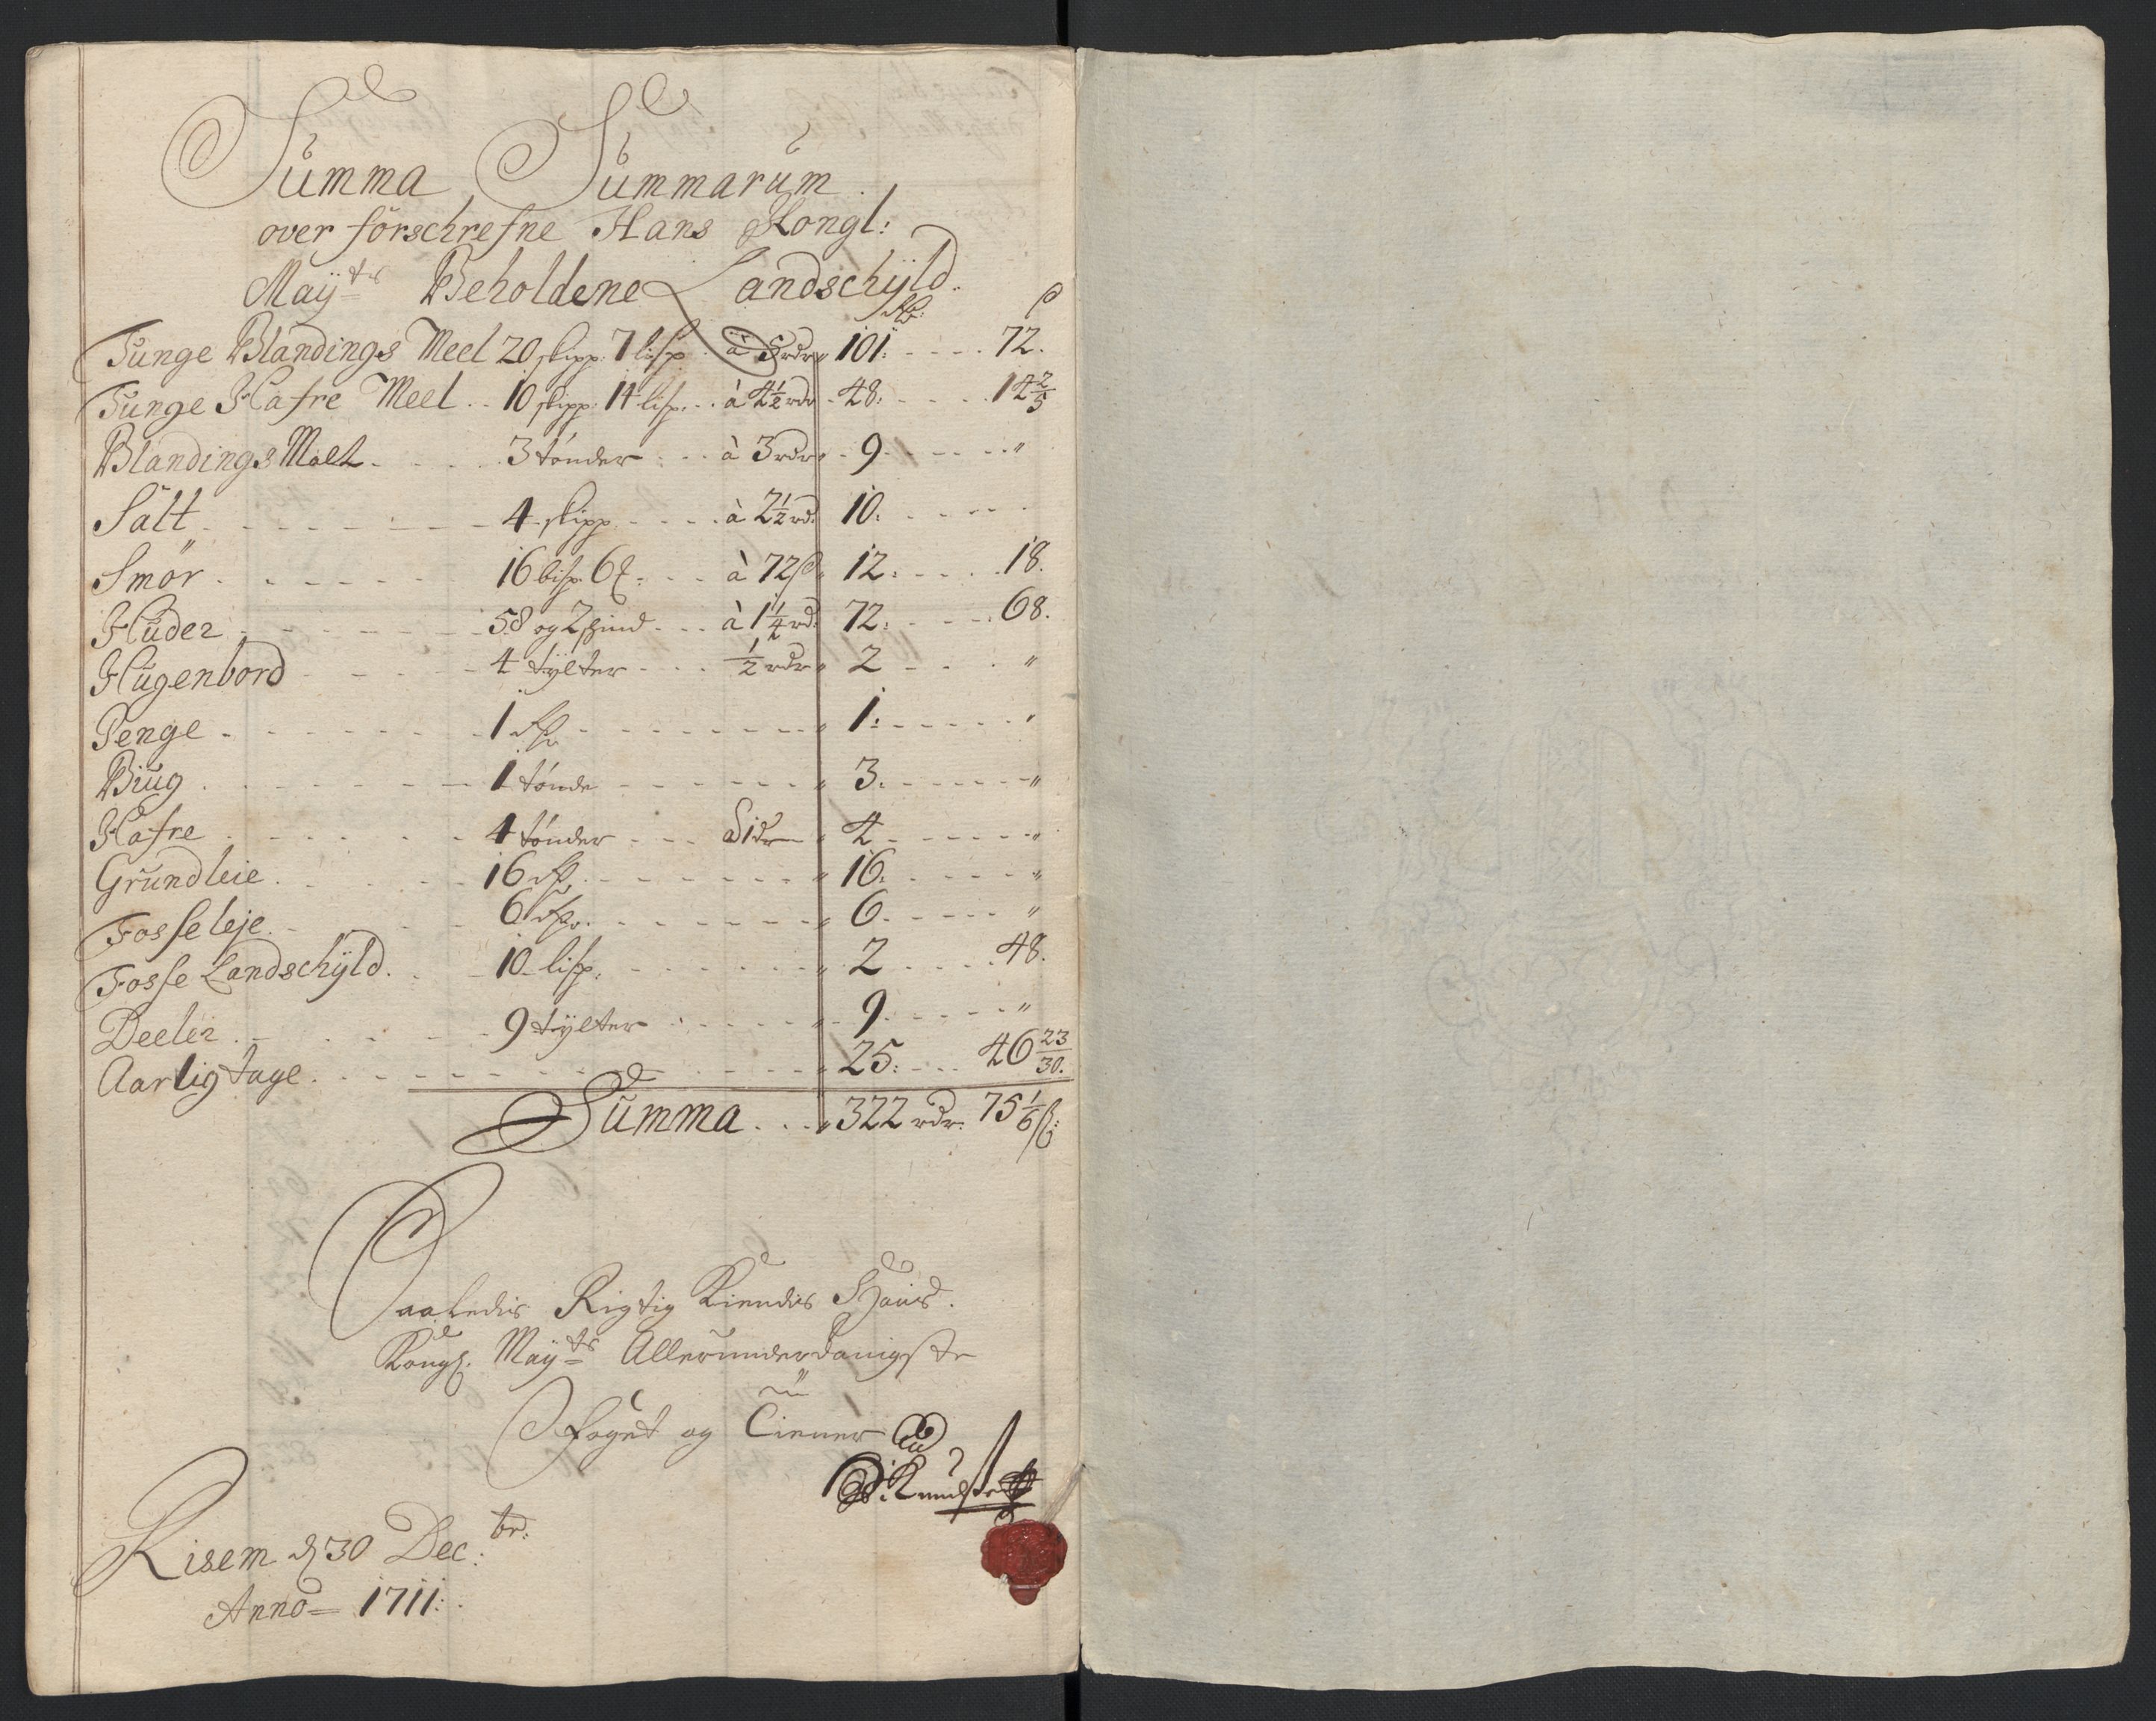 Summa Summarum
over forschrefne Hans Kongl:
Maÿ:ts Beholdene Landschÿld.
Rdr: ß
Tunge Blandings Meel 20 skipp: 7 lisp à 5 rdr 101: 72.
Tunge Hafre Meel 10 skipp: 14 lisp. à 4½ rdr 48: 14 2/5
Blandings Malt 3 tønder à 3 rdr 9 "
Salt 4 skipp à 2½ rd. 10:
Smør 16 bisp. 6 à 72 ß 12: 18.
Huder 58 og 2 skind à 1¼ rd. 72: 68.
Hugenbord 4 tÿlter ½ rdr 2 "
Penge 1 rdr 1: "
Biug 1 tønde 3: "
Hafre 4 tønder 4 "
Grundleie 16 rdr 16: "
Fosseleje 6 rdr. 6 "
Fosse Landschÿld 10 lisp. 2 48.
Deeler 9 tÿlter 9 "
Aarlig tage 25: 46 23/30.
Summa 322 rdr. 75 1/6 ß:
Saaledis Rigtig Kiendis Hans
Kongl. Maÿ:ts Allerunderdanigste
Foget og Tiener
Risem d 30 Dec:br:
Anno 1711: